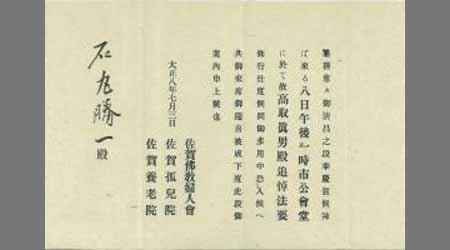 御清昌之段奉慶賀候陳
ば來る八日午後一時市公會堂
に於て故高取眞男殿追悼法要
修行仕度候間御多用中恐入候へ
共御來席御追吊被成下度此段御
案内申上候也
大正八年七月三日
佐賀佛敎婦人會
佐賀孤兒院
佐賀養老院
石丸勝一殿